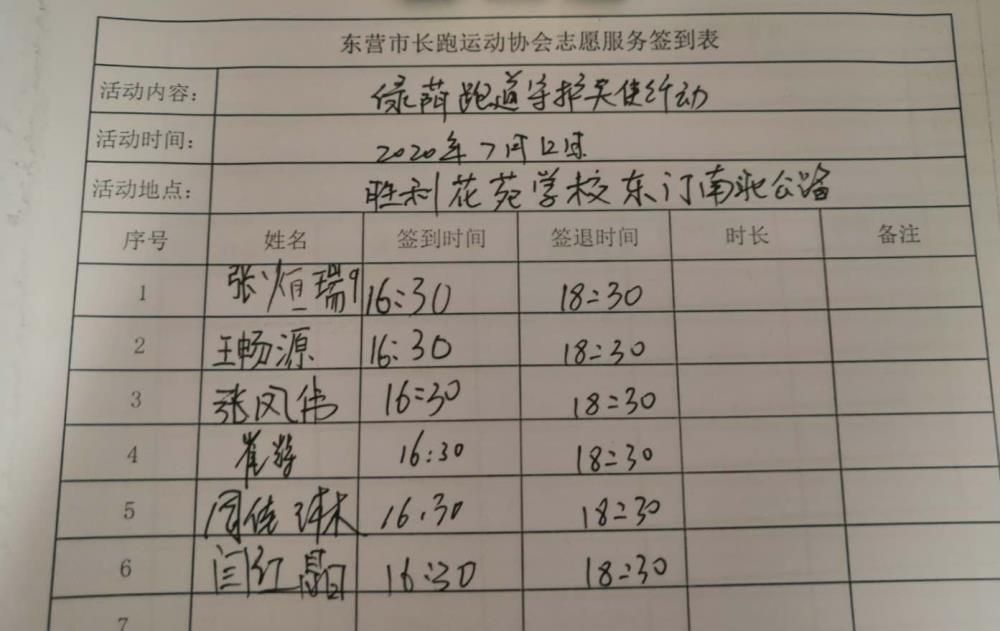 东营市长跑运动协会志愿服务签到表
活动内容： 绿荫跑道守护天使行动
活动时间： 2020年7月12日
活动地点： 胜利花苑学校东门南北公路
序号 姓名 签到时间 签退时间 时长 备注
1 张烜瑞 16:30 18:30
2 王畅源 16:30 18:30
3 张风伟 16:30 18:30
4 崔 16:30 18:30
5 周佳琳 16:30 18:30
6 闫红晶 16:30 18:30
7